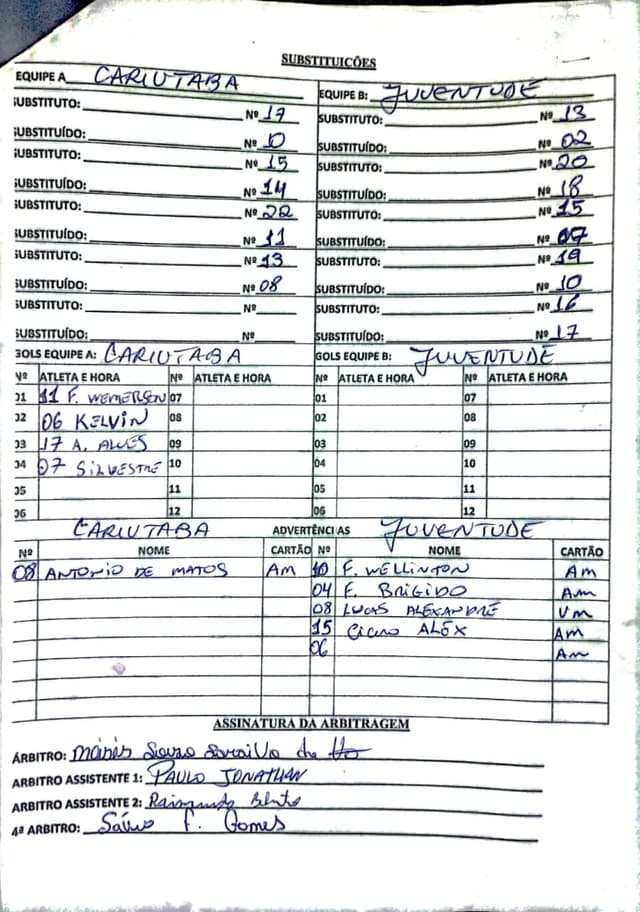 SUBSTITUICÕES
EQUIPE A CARIUTABA
EQUIPE B: JUVENTUDE
SUBSTITUTO: Nº 17
SUBSTITUTO: Nº 13
SUBSTITUÍDO: Nº 10
SUBSTITUÍDO: Nº 02
SUBSTITUTO: Nº 15
SUBSTITUTO: Nº 20
SUBSTITUÍDO: Nº 14
SUBSTITUÍDO: Nº 18
SUBSTITUTO: Nº 22
SUBSTITUTO: Nº 15
SUBSTITUÍDO: Nº 11
SUBSTITUÍDO: Nº 07
SUBSTITUTO: Nº 13
SUBSTITUTO: Nº 19
SUBSTITUÍDO: Nº 08
SUBSTITUÍDO: Nº 10
SUBSTITUTO: Nº
SUBSTITUTO: Nº 16
SUBSTITUÍDO: Nº
SUBSTITUÍDO: Nº 17
GOLS EQUIPE A: CARIUTABA GOLS EQUIPE B: JUVENTUDE
Nº ATLETA E HORA Nº ATLETA E HORA Nº ATLETA E HORA Nº ATLETA E HORA
01 11 F. WEMERSON 07 01 07
02 06 KELVIN 08 02 08
03 17 A. ALVES 09 03 09
04 07 SILVESTRE 10 04 10
05 11 05 11
06 12 06 12
CARIUTABA ADVERTÊNCIAS JUVENTUDE
Nº NOME CARTÃO Nº NOME CARTÃO
08 ANTONIO DE MATOS Am 10 F. WELLINTON Am
04 F. BRIGIDO Am
08 LUCAS ALEXANDRE Vm
15 Cicero ALEX Am
06 Am
ASSINATURA DA ARBITRAGEM
ÁRBITRO:
ARBITRO ASSISTENTE 1: PAULO JONATHAN
ARBITRO ASSISTENTE 2: Raimundo Bento
4ª ARBITRO: Sávio F. Gomes